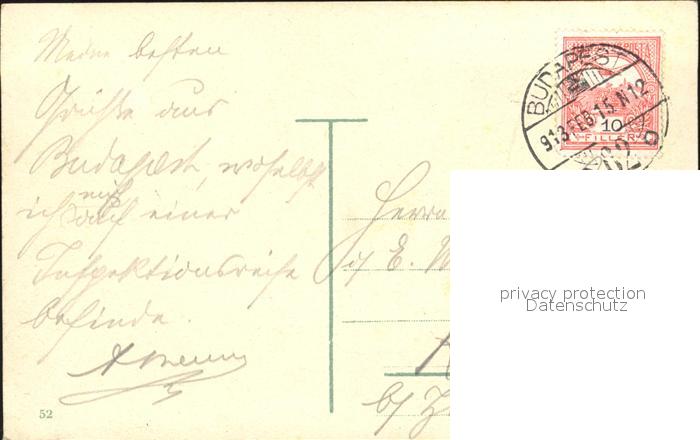 Meine besten
Grüße aus
Budapest, woselbst
ich mich auf einer
Inspektionsreise
befinde.
Herrn
E.
b/ Z
52
BUDAPEST
913 FEB 15 N12
62
10
FILLÉR
privacy protection
Datenschutz